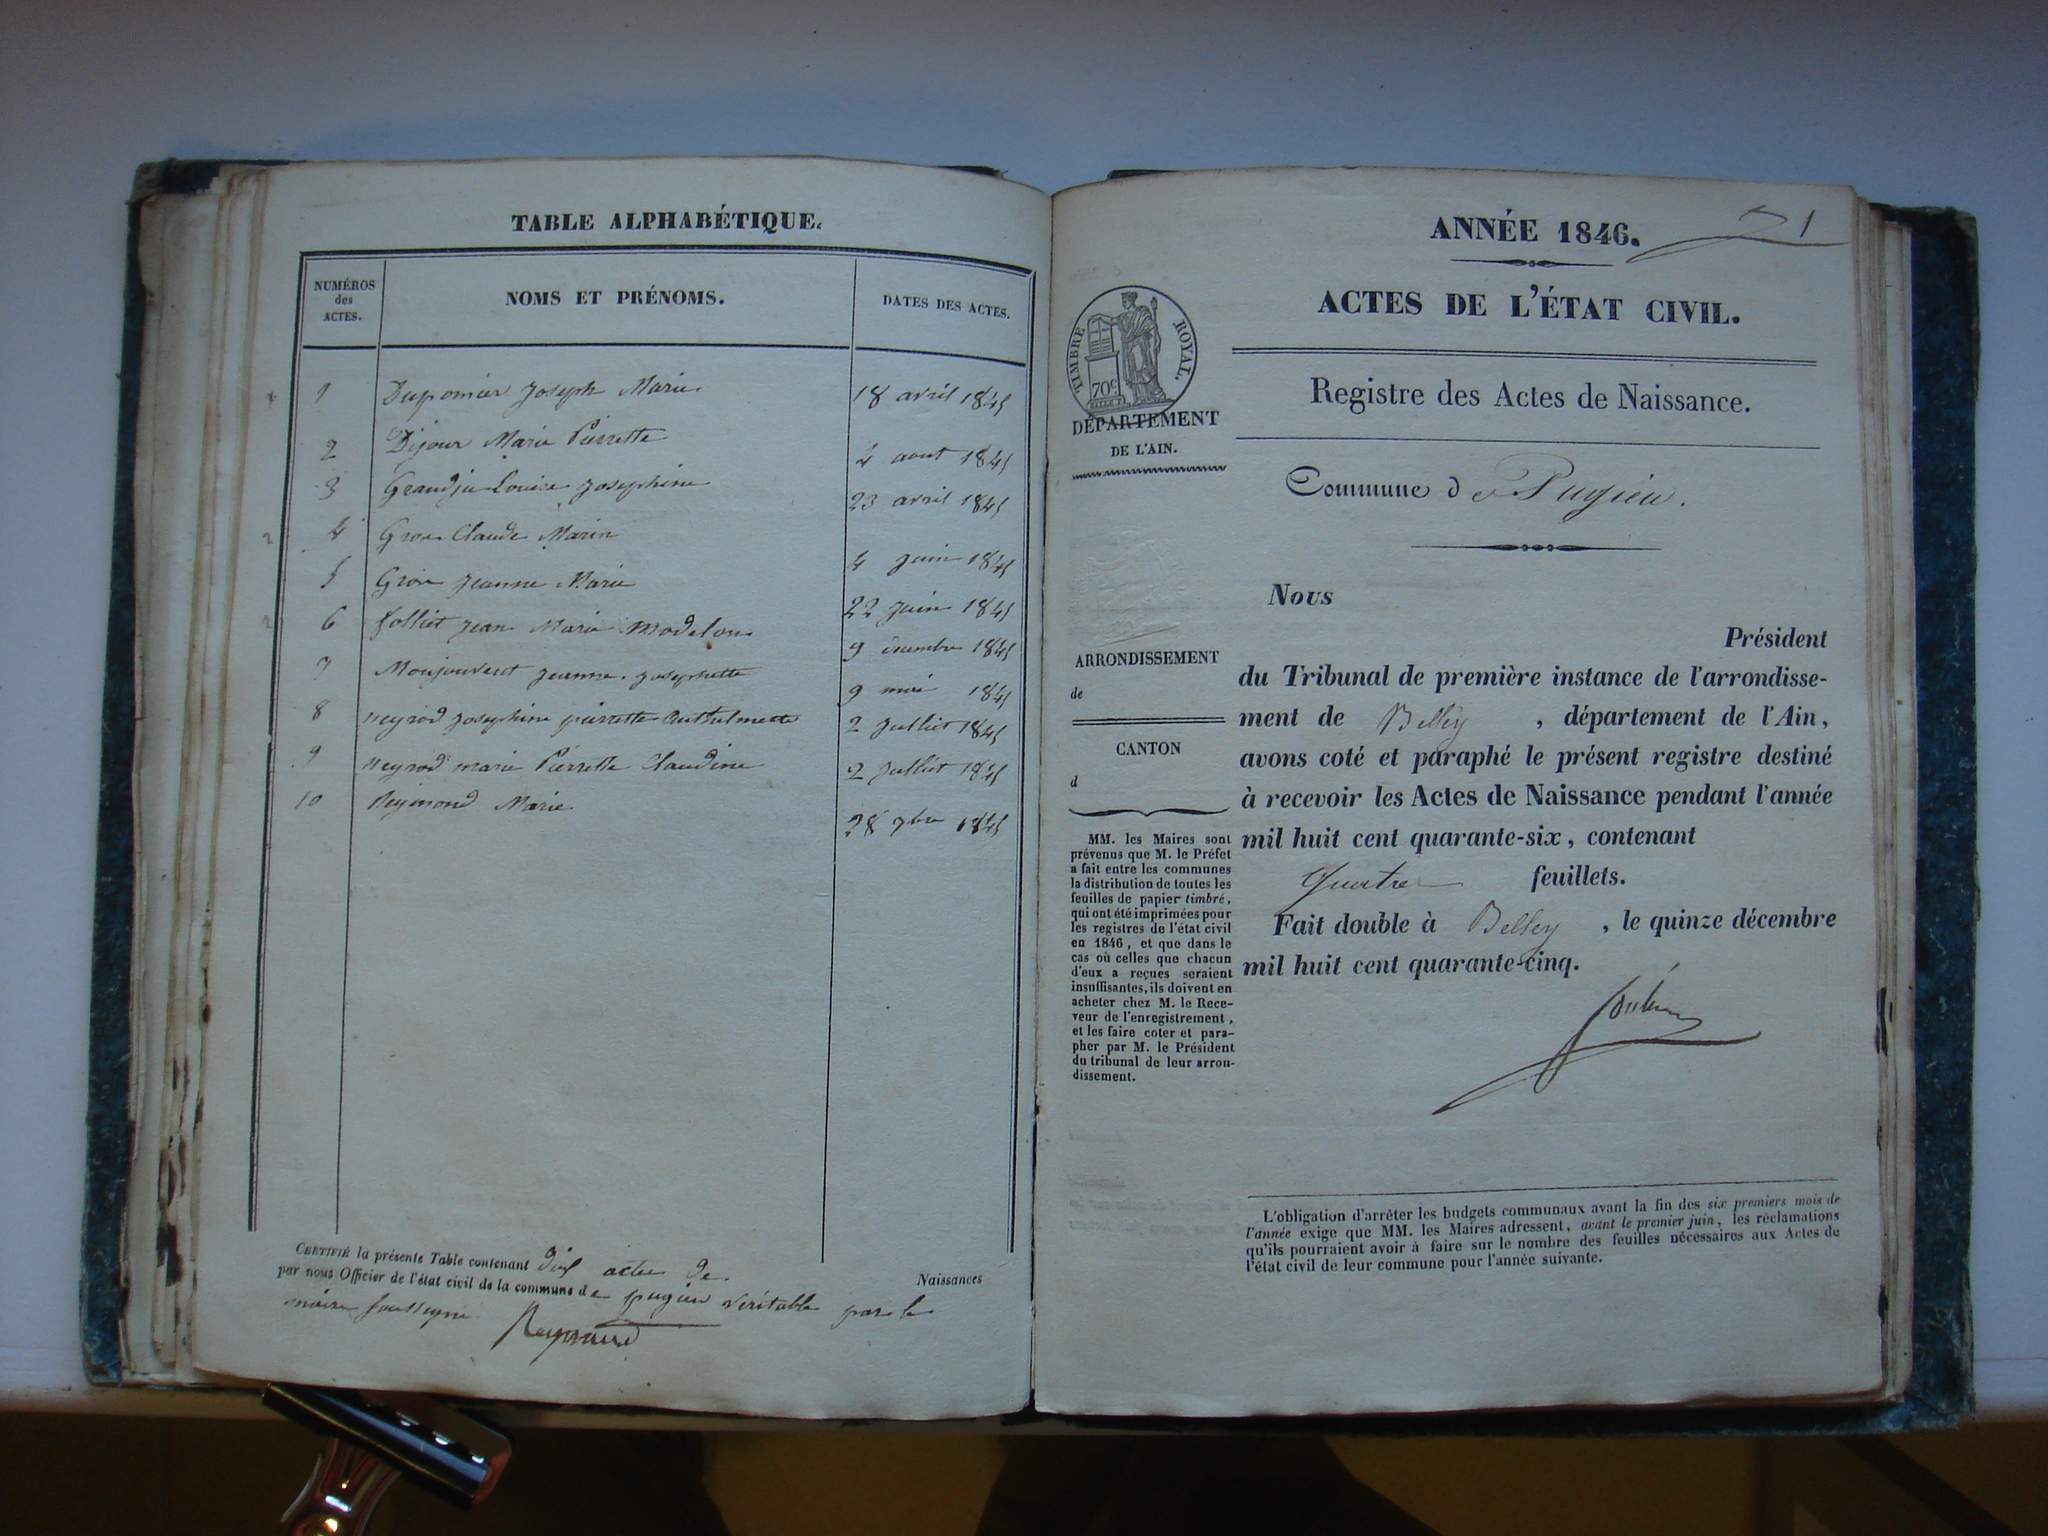 TABLE ALPHABÉTIQUE.
NUMÉROS
des
ACTES.
NOMS ET PRÉNOMS.
DATES DES ACTES.
1 Dupomier Joseph Marie 18 avril 1845
2 Dijour Marie Pierrette 4 aout 1845
3 Louise Josephine 23 avril 1845
4 Gros Claude Marin 4 juin 1845
5 Gros Jeanne Marie 22 juin 1845
6 folliet Jean Marie Modelon 9 1845
7 Monjouvent Jeanne Josephette 9 mai 1845
8 neyrod Josephine pierrette 2 Julliet 1845
9 neyrod marie Pierrette Claudine 2 Julliet 1845
10 Reymond Marie 28 1845
CERTIFIÉ la présente Table contenant dix actes de Naissances
par nous Officier de l'état civil de la commune de pugieu véritable par le
maire soussigné
Reymond
ANNÉE 1846. 1
ACTES DE L'ÉTAT CIVIL.
TIMBRE ROYAL.
70c
DÉPARTEMENT
DE L'AIN.
Registre des Actes de Naissance.
Commune de Pugieu.
ARRONDISSEMENT
de
CANTON
d
MM. les Maires sont
prévenus que M. le Préfet
a fait entre les communes
la distribution de toutes les
feuilles de papier timbré,
qui ont été imprimées pour
les registres de l'état civil
en 1846, et que dans le
cas où celles que chacun
d'eux a reçues seraient
insuffisantes, ils doivent en
acheter chez M. le Rece-
veur de l'enregistrement,
et les faire coter et para-
pher par M. le Président
du tribunal de leur arron-
dissement.
Nous
Président
du Tribunal de première instance de l'arrondisse-
ment de Belley, département de l'Ain,
avons coté et paraphé le présent registre destiné
à recevoir les Actes de Naissance pendant l'année
mil huit cent quarante-six, contenant
Quatre feuillets.
Fait double à Belley, le quinze décembre
mil huit cent quarante-cinq.
L'obligation d'arrêter les budgets communaux avant la fin des six premiers mois de
l'année exige que MM. les Maires adressent, avant le premier juin, les réclamations
qu'ils pourraient avoir à faire sur le nombre des feuilles nécessaires aux Actes de
l'état civil de leur commune pour l'année suivante.